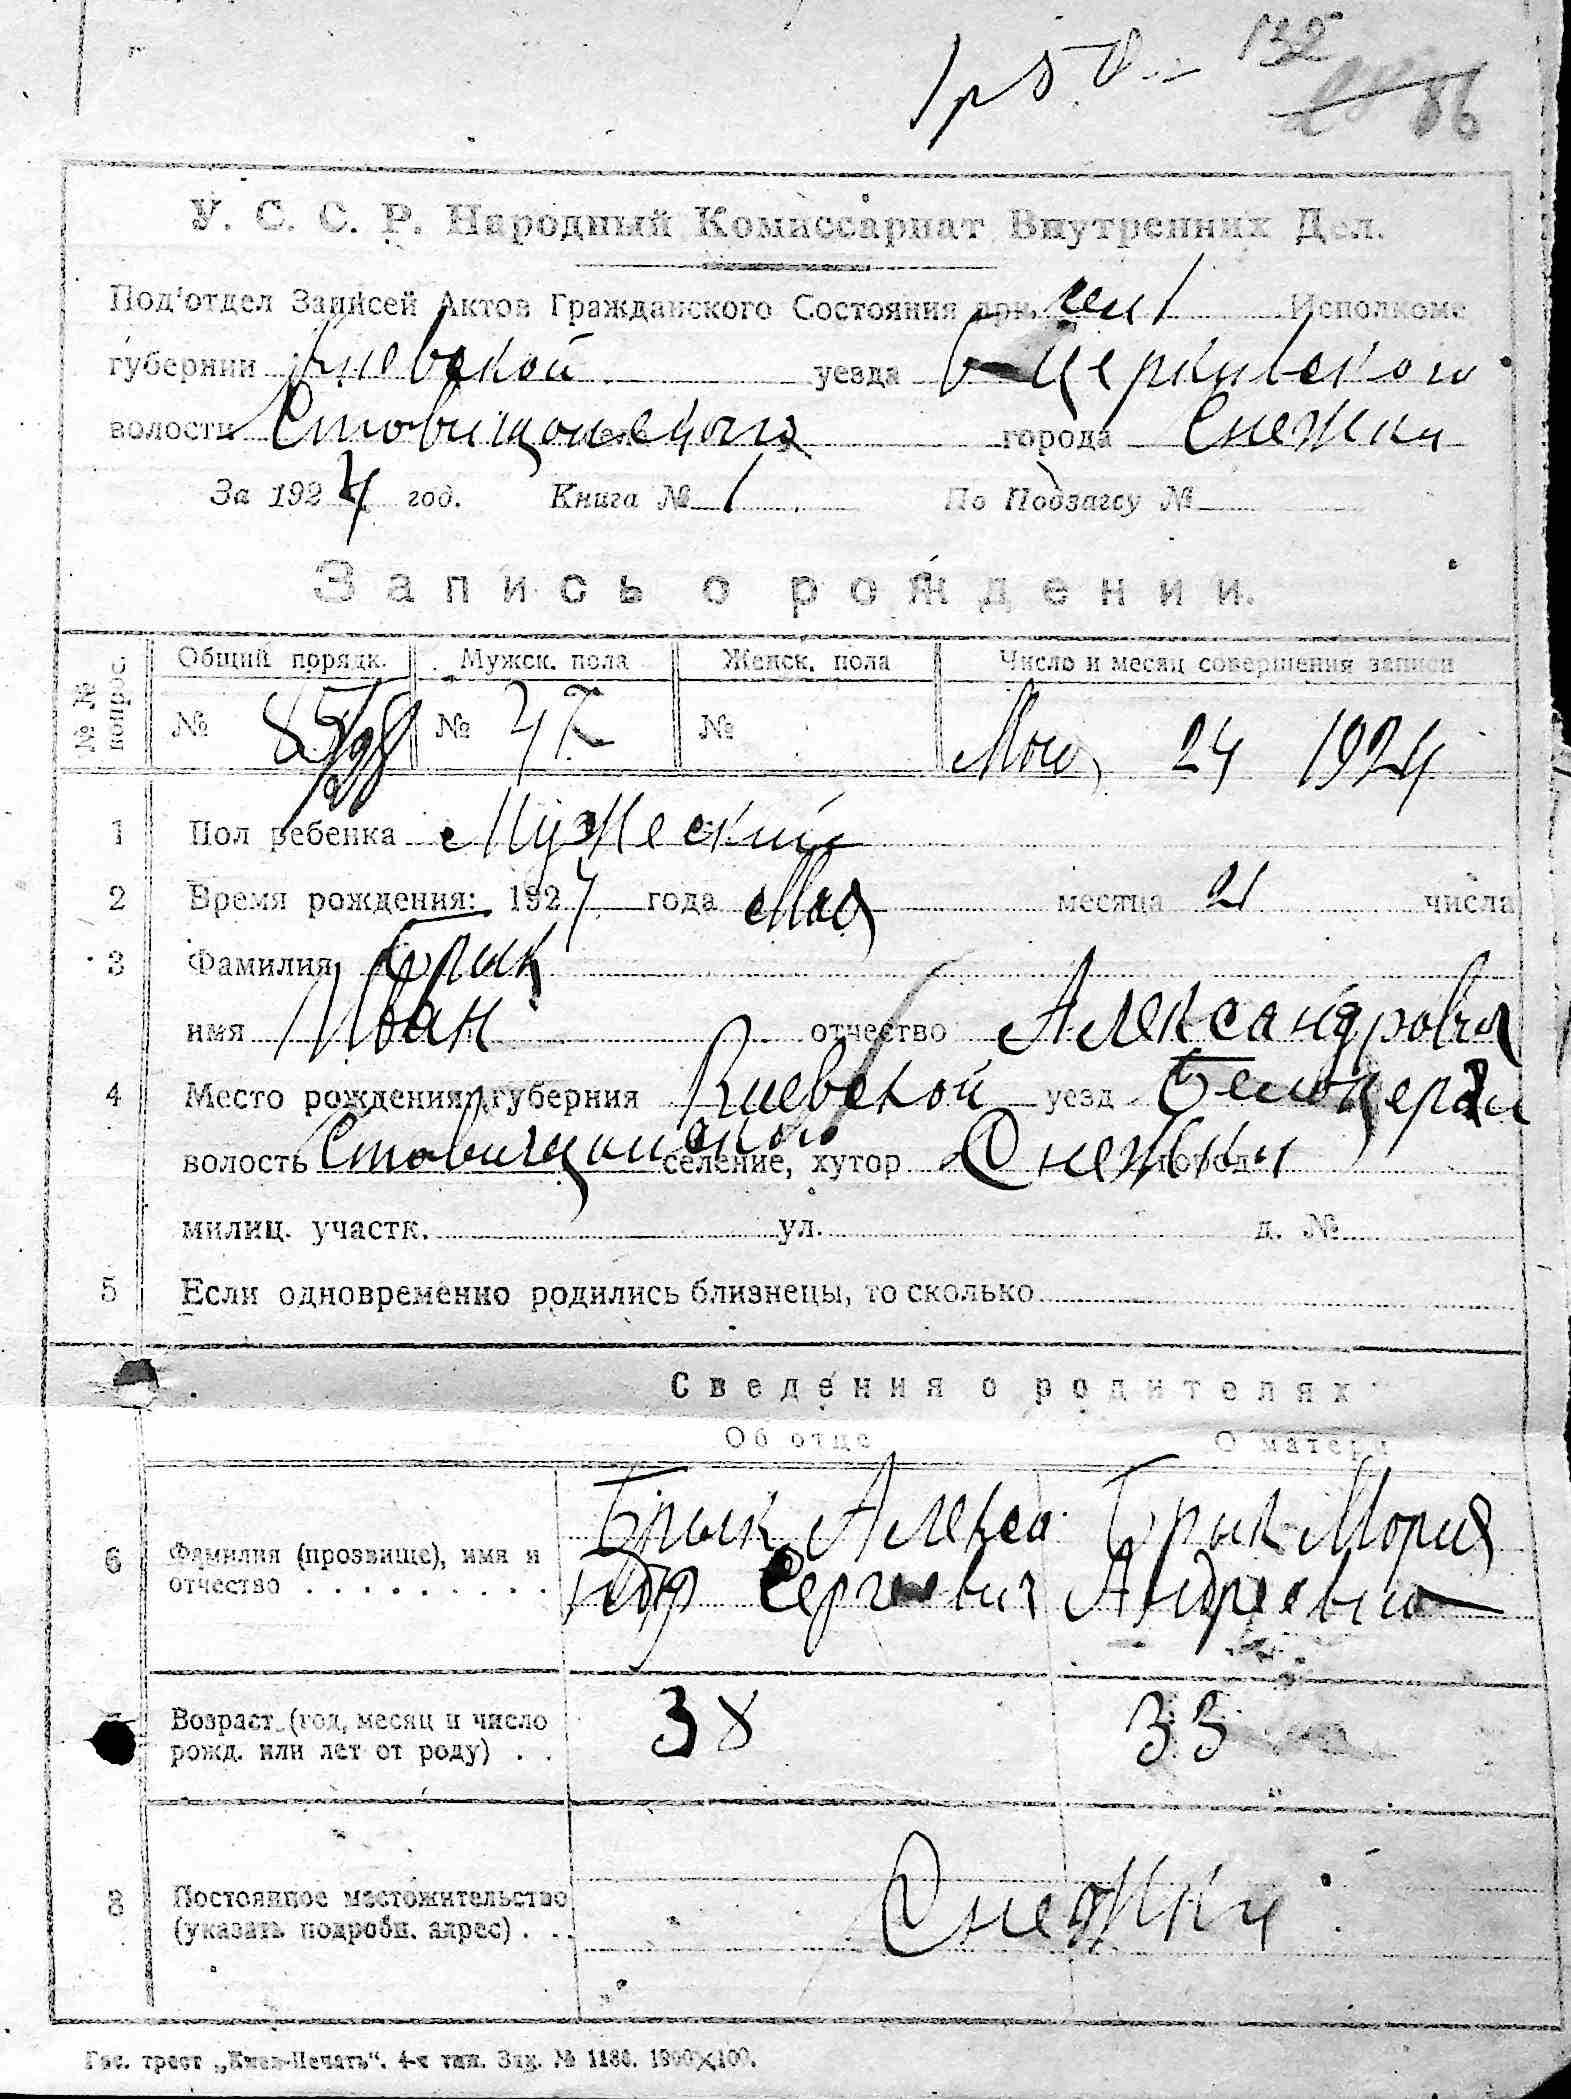 1р 50 132
86
У. С. С. Р. Народный Комиссариат Внутренних Дел.
Под'отдел Записей Актов Гражданского Состояния при Исполкоме
губернии Киевской уезда Б Церкивского
волости города Снежки
За 1924 год. Книга № 1 По Подзагсу №
Запись о рождении.
№ № вопрос. Общий порядк. Мужск. пола Женск. пола Число и месяц совершения записи
№ 85 № 47 № Мая 24 1924
1 Пол ребенка Мужеский
2 Время рождения: 1924 года Мая месяца 21 числа
3 Фамилия Брык
имя Иван отчество Александрович
4 Место рождения: губерния Киевской уезд Белоцерк
волость Ставищанской селение, хутор Снежки город
милиц. участк. ул. д. №
5 Если одновременно родились близнецы, то сколько
Сведения о родителях
Об отце О матери
Брык Алекса Брык Мория
6 Фамилия (прозвище), имя и
отчество ндр Сергеевич Андреевна
7 Возраст (год, месяц и число
рожд. или лет от роду) . . 38 33
8 Постоянное местожительство
(указать подробн. адрес) . . . Снежки
Гос. трест „Киев-Печать". 4-я тип. Зак. № 1186. 1900×100.